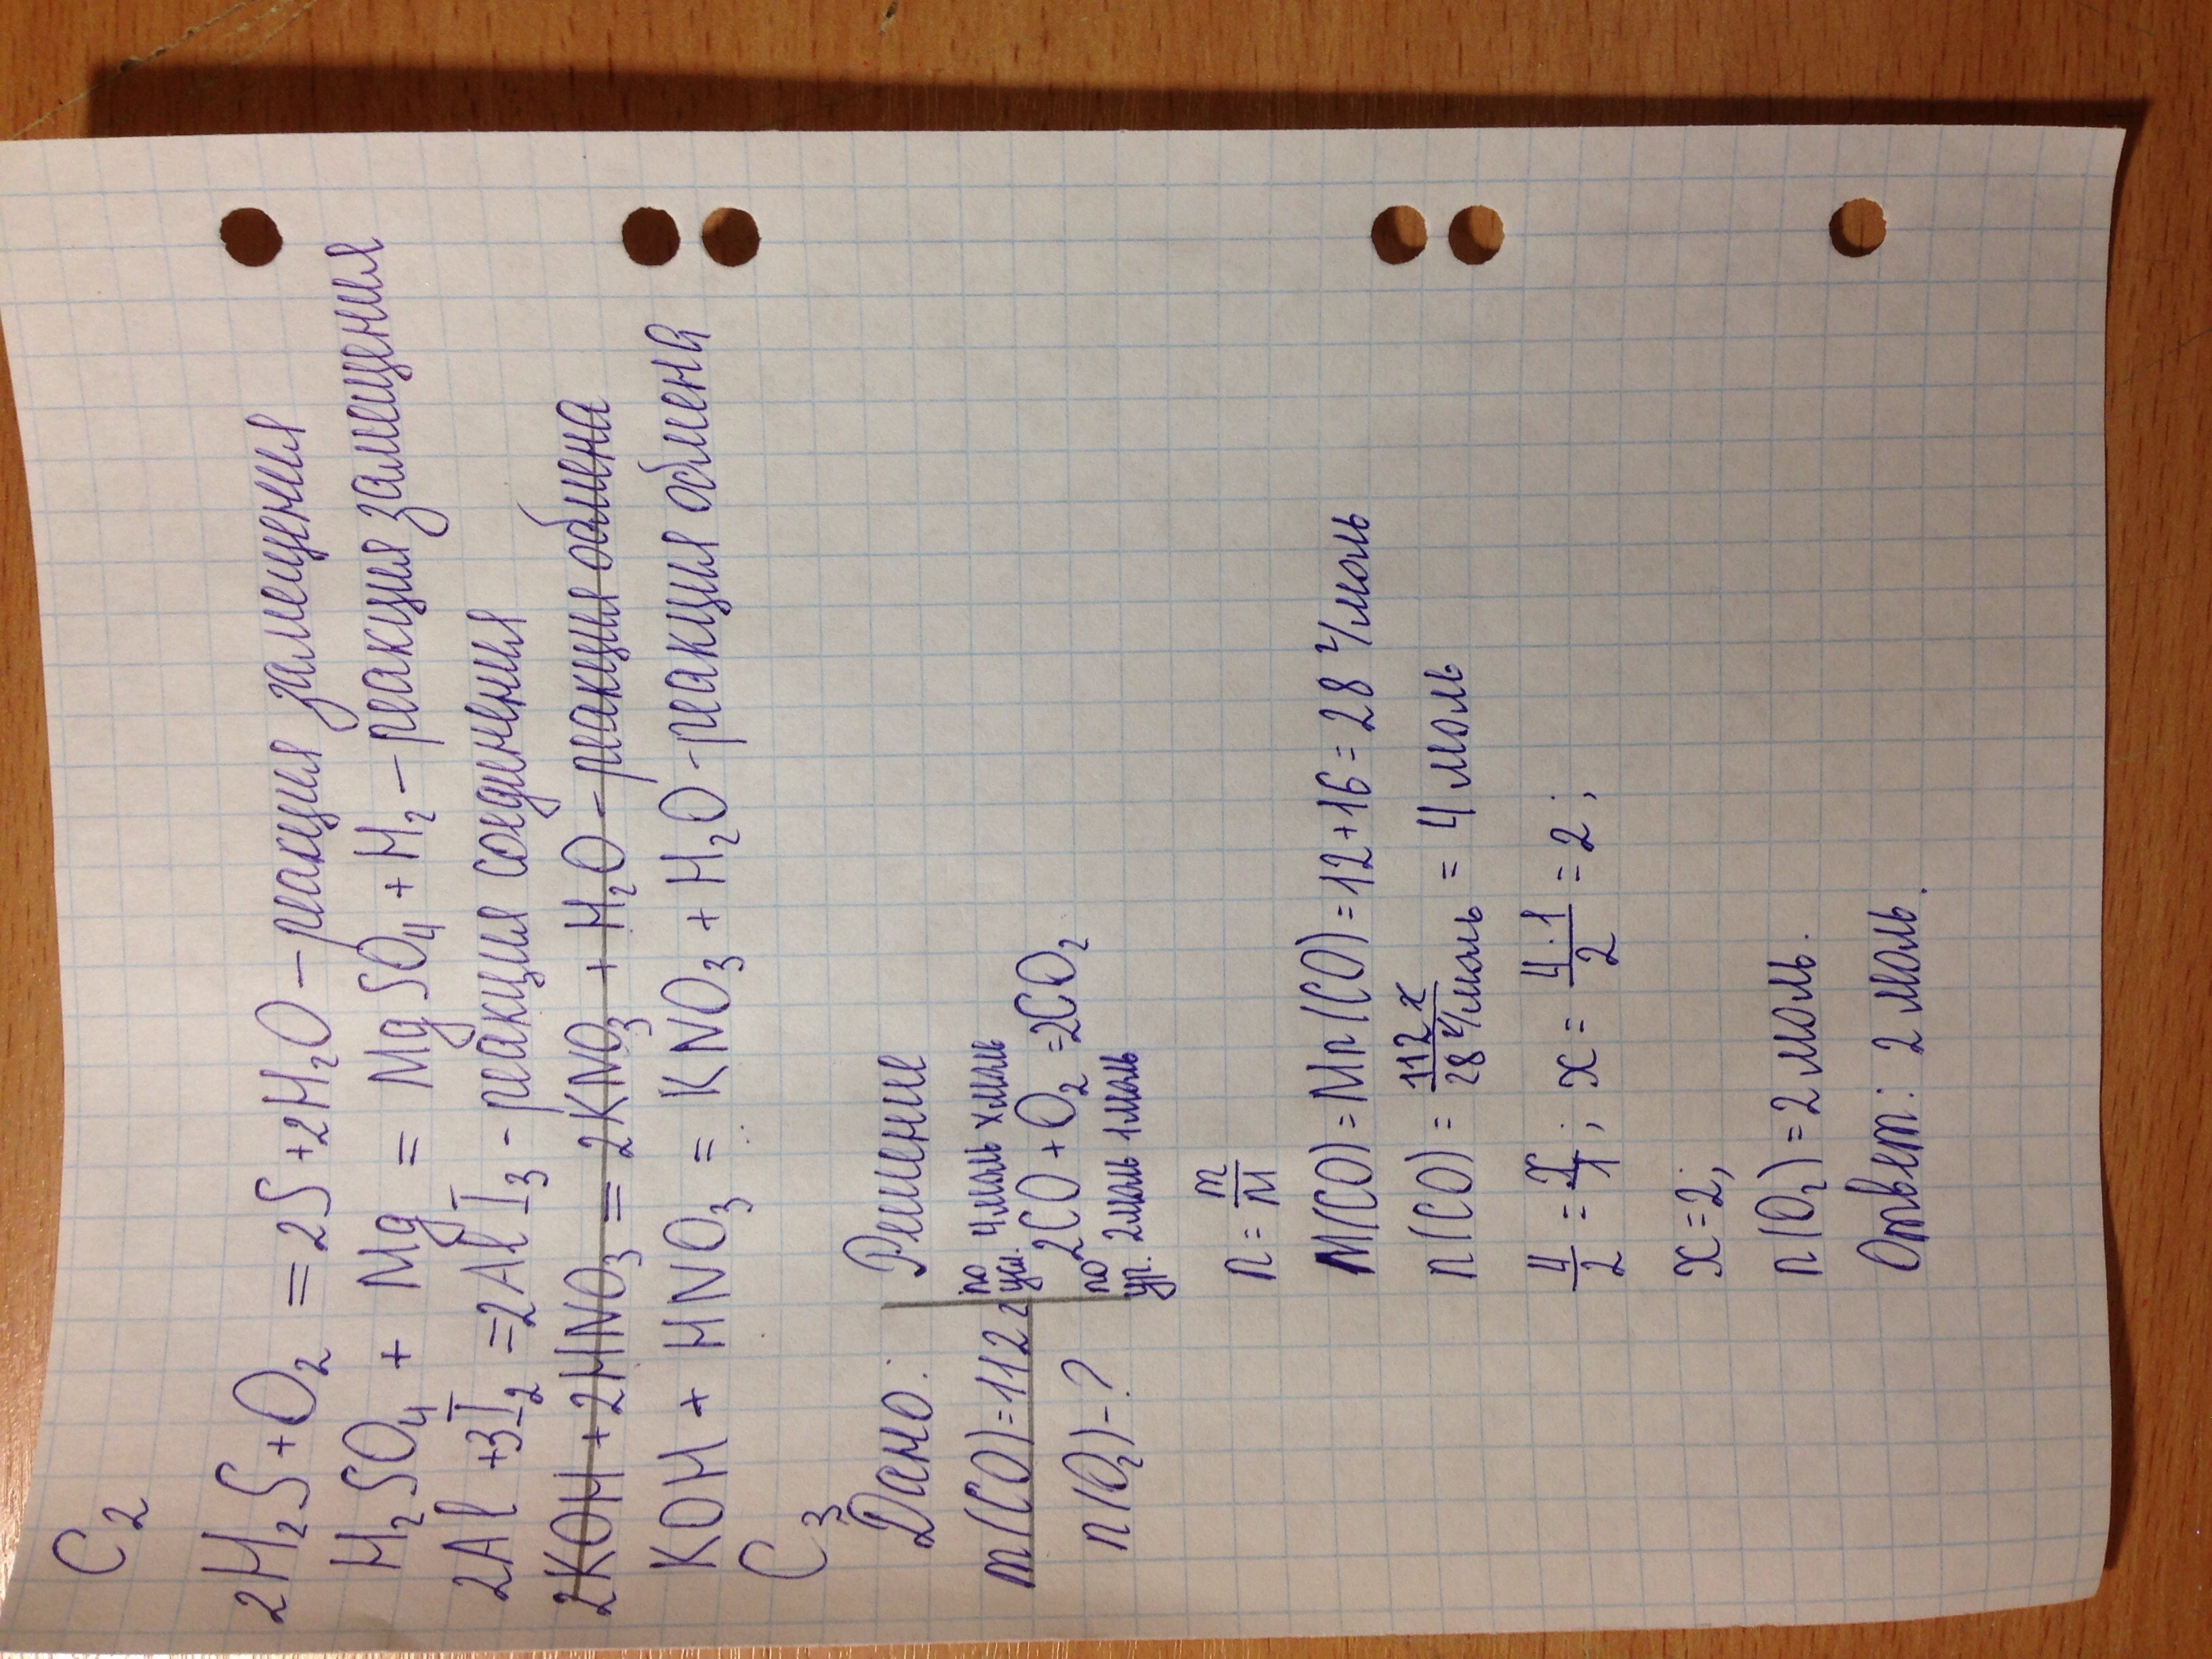 C₂
2H₂S+O₂ = 2S+2H₂O – реакция замещения
H₂SO₄ + Mg = MgSO₄ + H₂ – реакция замещения
2Al +3I₂ =2AlI₃ - реакция соединения
2KOH +2HNO₃ = 2KNO₃ + H₂O – реакция обмена
KOH + HNO₃ = KNO₃ + H₂O -реакция обмена
C₃
Дано: Решение
m(CO)=112г
n(O₂)-?
по усл. 4моль xмоль
2CO + O₂ =2CO₂
по ур. 2моль 1моль
n = m/M
M(CO)=Mr(CO)=12+16=28 г/моль
n(CO) = 112 г / 28 г/моль = 4 моль
4/2 = x/1; x = 4·1/2 = 2;
x=2;
n(O₂)=2 моль.
Ответ: 2 моль.